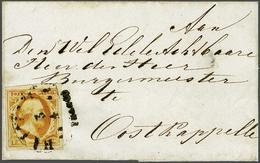 Aan
Den Wel Edele Achtbaare
Heer den Heer
Burgermeester
te
Oostkappelle